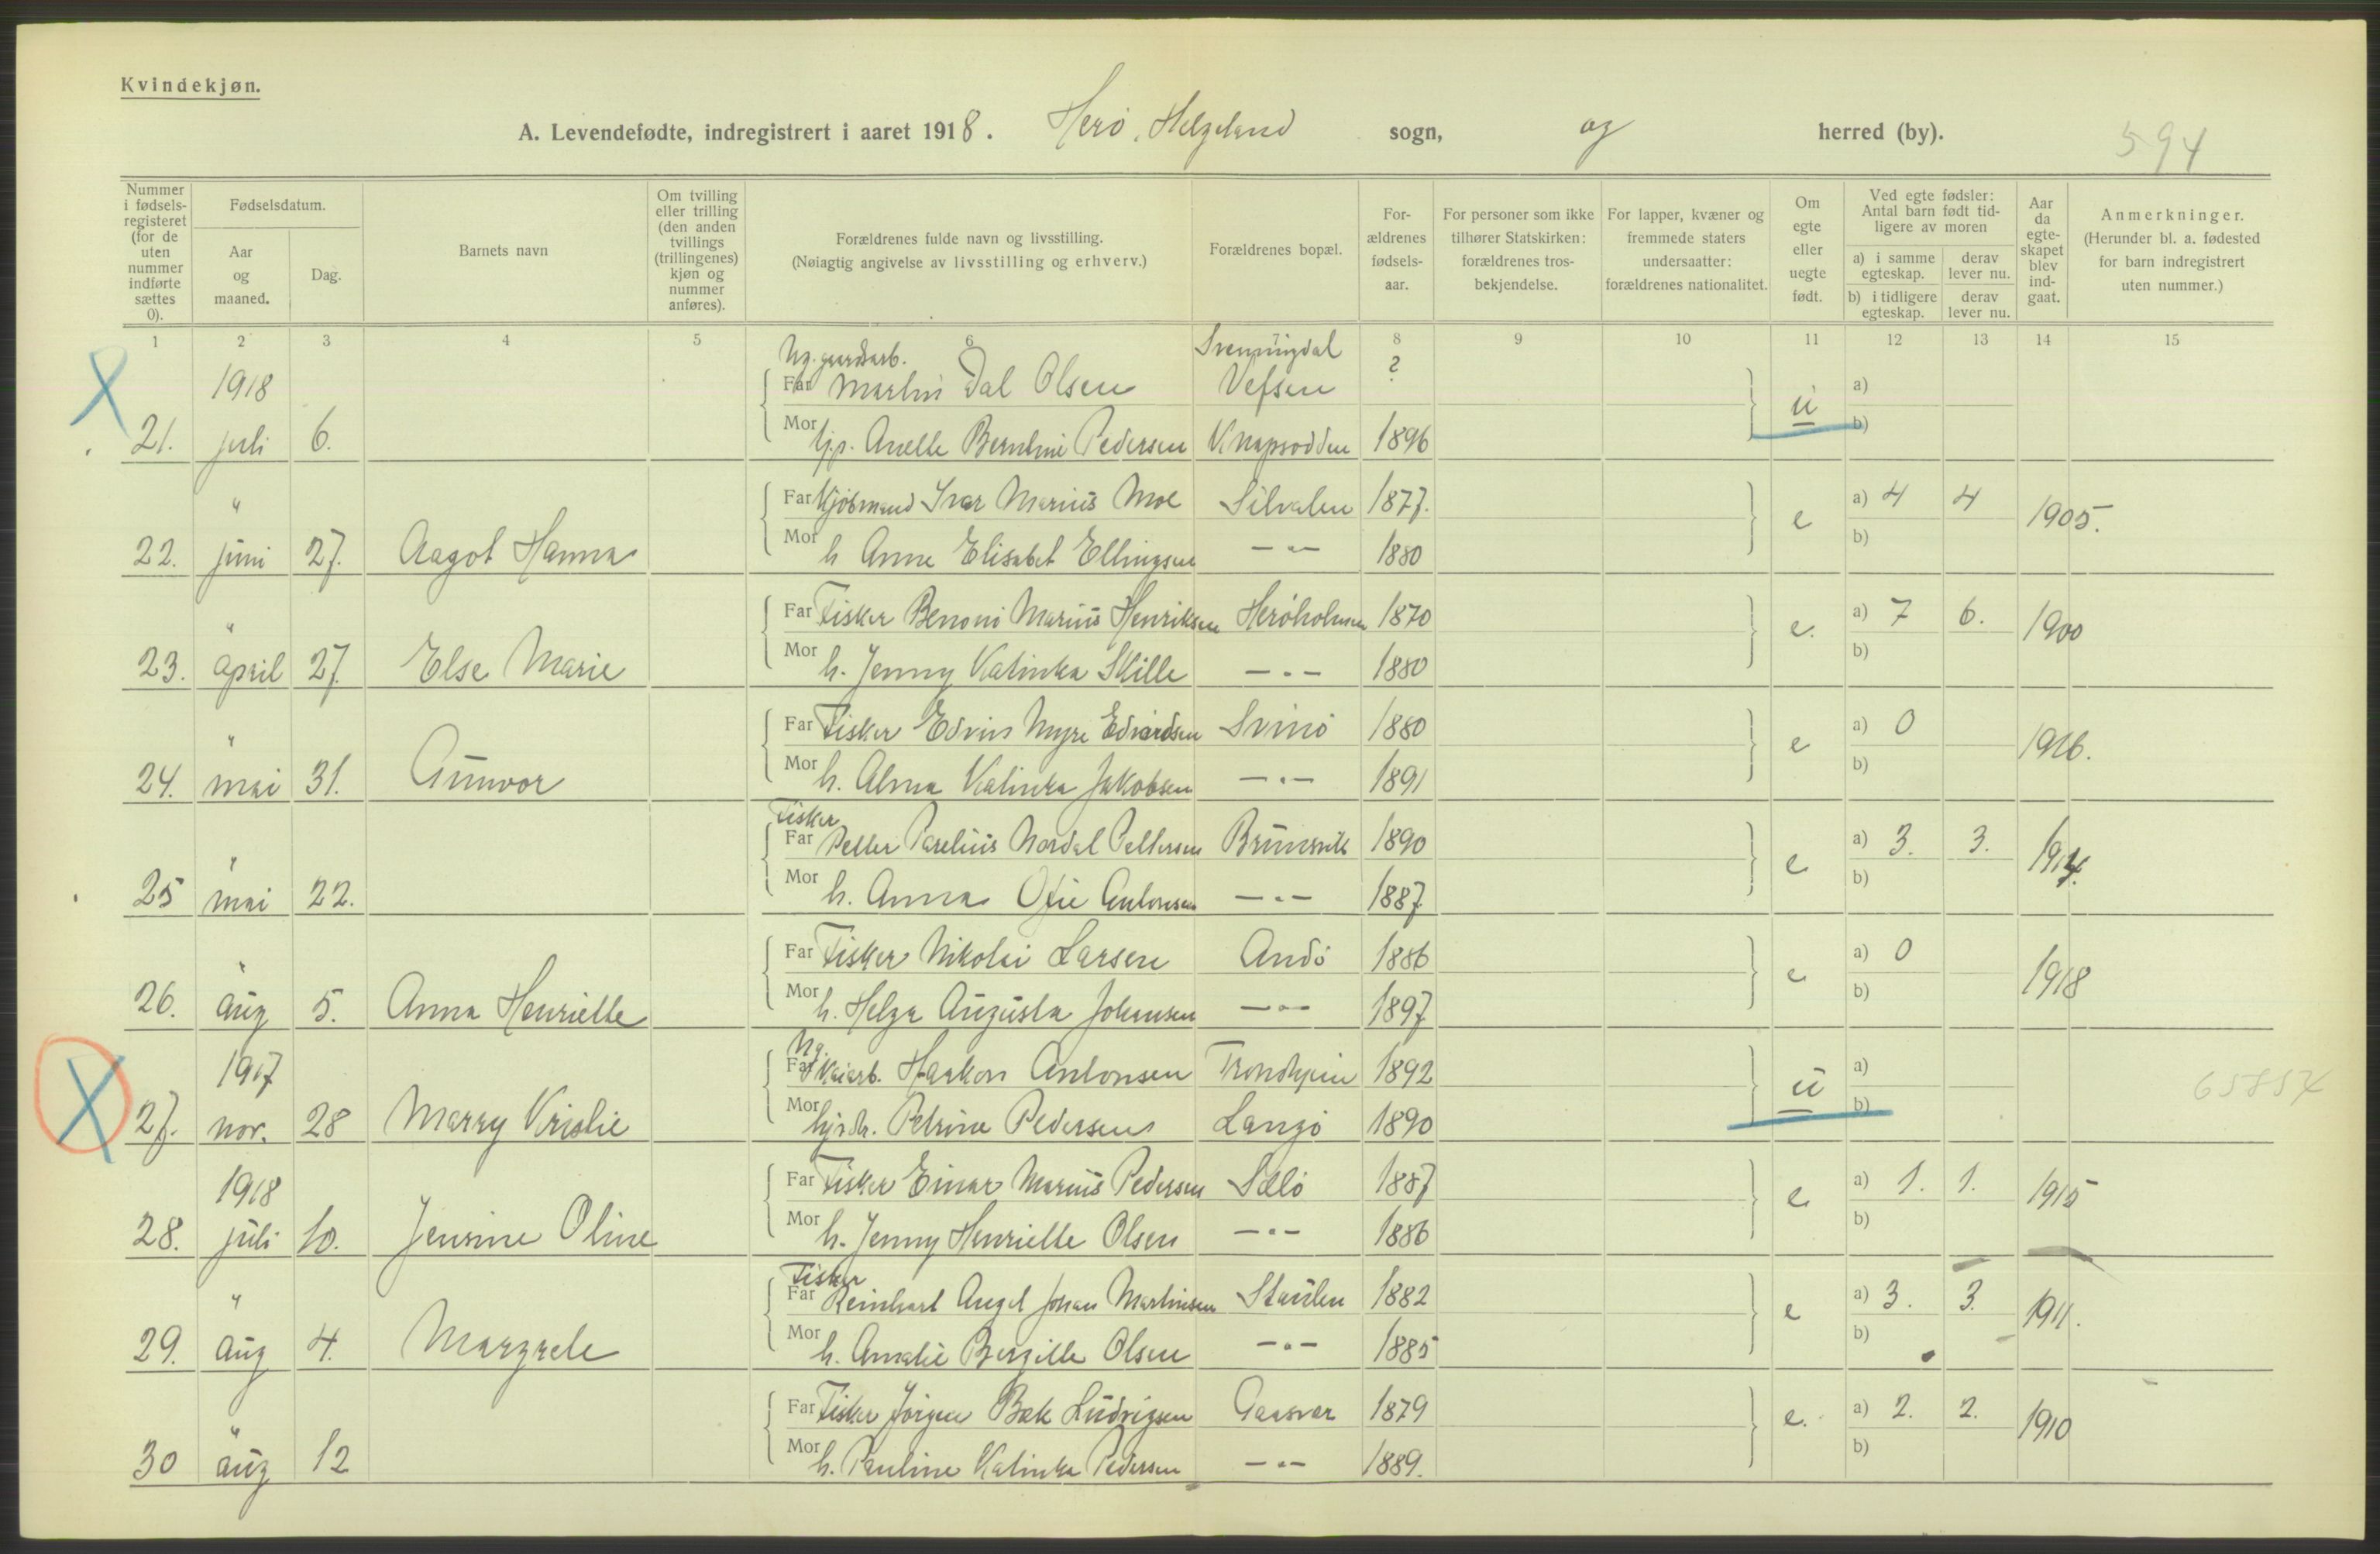 Kvindekjøn.
A. Levendefødte, indregistrert i aaret 1918. Herø, Helgeland sogn, og herred (by). 594
Nummer i fødsels-registeret (for de uten nummer indførte sættes 0).
Fødselsdatum.
Aar og maaned.
Dag.
Barnets navn
Om tvilling eller trilling (den anden tvillings (trillingenes) kjøn og nummer anføres).
Forældrenes fulde navn og livsstilling.
(Nøiagtig angivelse av livsstilling og erhverv.)
Forældrenes bopæl.
For-ældrenes fødsels-aar.
For personer som ikke tilhører Statskirken: forældrenes tros-bekjendelse.
For lapper, kvæner og fremmede staters undersaatter: forældrenes nationalitet.
Om egte eller uegte født.
Ved egte fødsler: Antal barn født tid-ligere av moren
a) i samme egteskap. derav lever nu.
b) i tidligere egteskap. derav lever nu.
Aar da egte-skapet blev ind-gaat.
Anmerkninger.
(Herunder bl. a. fødested for barn indregistrert uten nummer.)
1 2 3 4 5 6 7 8 9 10 11 12 13 14 15
Ug. gaardsarb. Svenningdal
1918 Far Martin Dal Olsen Vefsen ? a)
21. juli 6. Mor tjp. Anette Berntine Pedersen Knapsodden 1896 u b)
" Far Kjøbmand Ivar Marius Moe Silvalen 1877. a) 4 4
22. juni 27. Aagot Hanna Mor h Anne Elisabet Ellingsen — " — 1880 e b) 1905.
" Far Fisker Benoni Marius Henriksen Herøholmen 1870 a) 7 6.
23. april 27. Else Marie Mor h. Jenny Katinka Skille — " — 1880 e. b) 1900
" Far Fisker Edvin Myre Edvardsen Svinø 1880 a) 0
24. mai 31. Gunvor Mor h. Alma Katinka Jakobsen — " — 1891 e b) 1916.
Fisker
" Far Petter Parelius Nordal Pettersen Brunsvik 1890 a) 3. 3.
25 mai 22. Mor h. Anna Ofie Antonsen — " — 1887. e b) 1914.
" Far Fisker Nikolai Larsen Andø 1886 a) 0
26. aug 5. Anna Henriette Mor h. Helga Augusta Johansen — " — 1897. e b) 1918
Ug.
1917 Far Kaiarb. Haakon Antonsen Trondhjem 1892 a)
27. nor. 28 Marry Kristie Mor Petrine Pedersen Langø 1890 u b) 65857
1918 Far Fisker Einar Marius Pedersen Sælø 1887 a) 1. 1.
28. juli 10. Jensine Oline Mor h. Jenny Henriette Olsen — " — 1886 e b) 1915
Fisker
" Far Reinhart Angel Johan Martinsen Staulen 1882 a) 3. 3.
29. aug 4. Margrete Mor h. Amalie Bergitte Olsen — " — 1885 e b) 1911.
" Far Fisker Jørgen Bek Ludvigsen Gaasvær 1879 a) 2. 2.
30 aug 12 Mor h. Pauline Katinka Pedersen — " — 1889. e. b) 1910